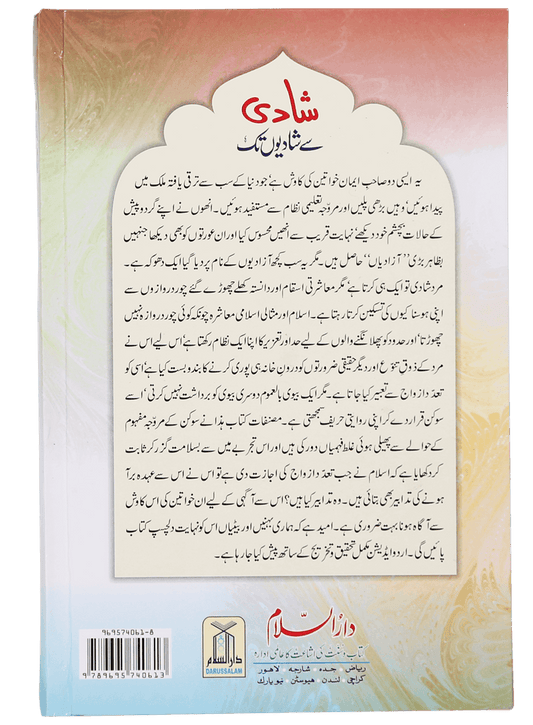 شادی
سے شادیوں تک
یہ ایسی دو صاحب ایمان خواتین کی کاوش ہے‘ جو دنیا کے سب سے ترقی یافتہ ملک میں
پیدا ہوئیں‘ وہیں بڑھی پلیں اور مروّجہ تعلیمی نظام سے مستفید ہوئیں۔ انھوں نے اپنے گرد و پیش
کے حالات بچشم خود دیکھے‘ نہایت قریب سے انھیں محسوس کیا اور ان عورتوں کو بھی دیکھا جنہیں
بظاہر بڑی ’’آزادیاں‘‘ حاصل ہیں۔ مگر یہ سب کچھ آزادیوں کے نام پر دیا گیا ایک دھوکہ ہے۔
مرد شادی تو ایک ہی کرتا ہے‘ مگر معاشرتی اسقام اور دانستہ کھلے چھوڑے گئے چور دروازوں سے
اپنی ہوسناکیوں کی تسکین کرتا رہتا ہے۔ اسلام اور مثالی اسلامی معاشرہ چونکہ کوئی چور دروازہ نہیں
چھوڑتا‘ اور حدود کو پھلانگنے والوں کے لیے حد اور تعزیر کا اپنا ایک نظام رکھتا ہے‘ اس لیے اس نے
مرد کے ذوقِ تنوّع اور دیگر حقیقی ضرورتوں کو درون خانہ ہی پوری کرنے کا بندوبست کیا ہے‘ اسی کو
تعدّد ازواج سے تعبیر کیا جاتا ہے۔ مگر ایک بیوی بالعموم دوسری بیوی کو برداشت نہیں کرتی‘ اسے
سوکن قرار دے کر اپنی روایتی حریف سمجھتی ہے۔ مصنفات کتاب ہذا نے سوکن کے مروّجہ مفہوم
کے حوالے سے پھیلی ہوئی غلط فہمیاں دور کی ہیں اور اس تجربے میں سے بسلامت گزر کر ثابت
کر دکھایا ہے کہ اسلام نے جب تعدّد ازواج کی اجازت دی ہے تو اس نے اس سے عہدہ برآ
ہونے کی تدابیر بھی بتائی ہیں۔ وہ تدابیر کیا ہیں؟ اس سے آگہی کے لیے ان خواتین کی اس کاوش
سے آگاہ ہونا بہت ضروری ہے۔ امید ہے کہ ہماری بہنیں اور بیٹیاں اس کو نہایت دلچسپ کتاب
پائیں گی۔ اردو ایڈیشن مکمل تحقیق و تخریج کے ساتھ پیش کیا جا رہا ہے۔
969574061-8
9 789695 740613
دارالسلام
DARUSSALAM
دارُالسّلام
کتاب و سنت کی اشاعت کا عالمی ادارہ
ریاض • جدہ • شارجہ • لاہور
کراچی • لندن • ہیوسٹن • نیو یارک